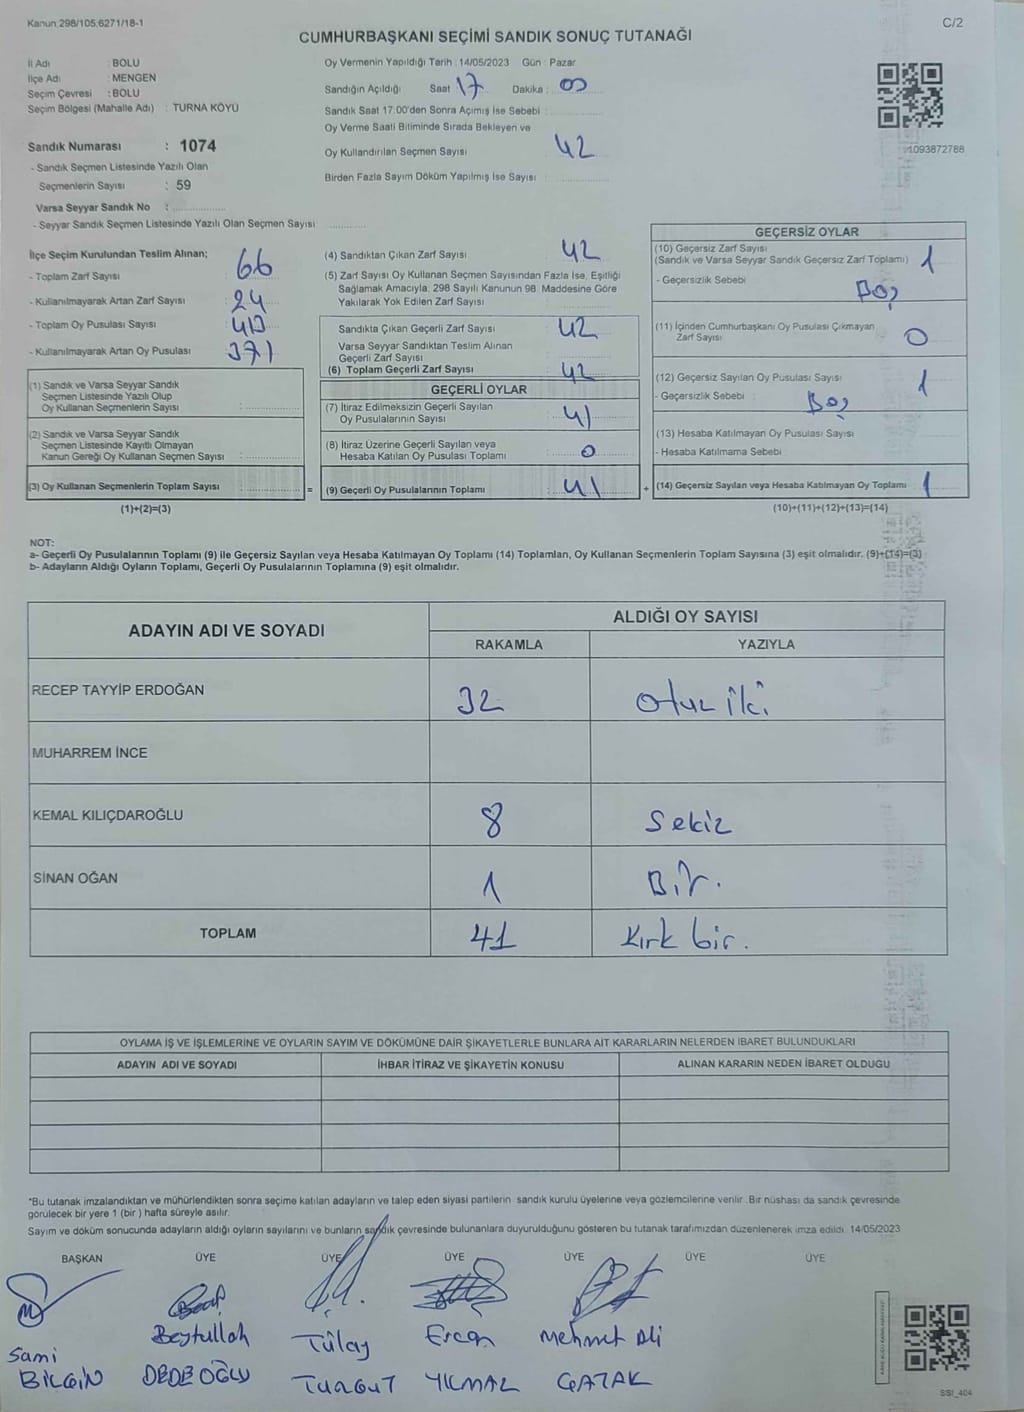 Kanun 298/105,6271/18-1
C/2
CUMHURBAŞKANI SEÇİMİ SANDIK SONUÇ TUTANAĞI
İl Adı : BOLU
İlçe Adı : MENGEN
Seçim Çevresi : BOLU
Seçim Bölgesi (Mahalle Adı) : TURNA KÖYÜ
Sandık Numarası : 1074
- Sandık Seçmen Listesinde Yazılı Olan
Seçmenlerin Sayısı : 59
Varsa Seyyar Sandık No :
- Seyyar Sandık Seçmen Listesinde Yazılı Olan Seçmen Sayısı
Oy Vermenin Yapıldığı Tarih : 14/05/2023 Gün : Pazar
Sandığın Açıldığı Saat 17 Dakika : 00
Sandık Saat 17.00'den Sonra Açımış İse Sebebi :
Oy Verme Saati Bitiminde Sırada Bekleyen ve
Oy Kullandırılan Seçmen Sayısı 42
Birden Fazla Sayım Döküm Yapılmış İse Sayısı
1093872788
İlçe Seçim Kurulundan Teslim Alınan;
- Toplam Zarf Sayısı 66
- Kullanılmayarak Artan Zarf Sayısı 24
- Toplam Oy Pusulası Sayısı 413
- Kullanılmayarak Artan Oy Pusulası 371
(1) Sandık ve Varsa Seyyar Sandık
Seçmen Listesinde Yazılı Olup
Oy Kullanan Seçmenlerin Sayısı :
(2) Sandık ve Varsa Seyyar Sandık
Seçmen Listesinde Kayıtlı Olmayan
Kanun Gereği Oy Kullanan Seçmen Sayısı :
(3) Oy Kullanan Seçmenlerin Toplam Sayısı : =
(1)+(2)=(3)
(4) Sandıktan Çıkan Zarf Sayısı 42
(5) Zarf Sayısı Oy Kullanan Seçmen Sayısından Fazla İse, Eşitliği
Sağlamak Amacıyla; 298 Sayılı Kanunun 98. Maddesine Göre
Yakılarak Yok Edilen Zarf Sayısı
Sandıkta Çıkan Geçerli Zarf Sayısı 42
Varsa Seyyar Sandıktan Teslim Alınan
Geçerli Zarf Sayısı
(6) Toplam Geçerli Zarf Sayısı 42
GEÇERLİ OYLAR
(7) İtiraz Edilmeksizin Geçerli Sayılan
Oy Pusulalarının Sayısı 41
(8) İtiraz Üzerine Geçerli Sayılan veya
Hesaba Katılan Oy Pusulası Toplamı 0
(9) Geçerli Oy Pusulalarının Toplamı 41 +
GEÇERSİZ OYLAR
(10) Geçersiz Zarf Sayısı
(Sandık ve Varsa Seyyar Sandık Geçersiz Zarf Toplamı) 1
- Geçersizlik Sebebi
Boş
(11) İçinden Cumhurbaşkanı Oy Pusulası Çıkmayan
Zarf Sayısı 0
(12) Geçersiz Sayılan Oy Pusulası Sayısı 1
- Geçersizlik Sebebi Boş
(13) Hesaba Katılmayan Oy Pusulası Sayısı
- Hesaba Katılmama Sebebi
(14) Geçersiz Sayılan veya Hesaba Katılmayan Oy Toplamı 1
(10)+(11)+(12)+(13)=(14)
NOT:
a- Geçerli Oy Pusulalarının Toplamı (9) ile Geçersiz Sayılan veya Hesaba Katılmayan Oy Toplamı (14) Toplamları, Oy Kullanan Seçmenlerin Toplam Sayısına (3) eşit olmalıdır. (9)+(14)=(3)
b- Adayların Aldığı Oyların Toplamı, Geçerli Oy Pusulalarının Toplamına (9) eşit olmalıdır.
ADAYIN ADI VE SOYADI
ALDIĞI OY SAYISI
RAKAMLA YAZIYLA
RECEP TAYYİP ERDOĞAN 32 Otuz iki
MUHARREM İNCE
KEMAL KILIÇDAROĞLU 8 Sekiz
SİNAN OĞAN 1 Bir.
TOPLAM 41 Kırk bir.
OYLAMA İŞ VE İŞLEMLERİNE VE OYLARIN SAYIM VE DÖKÜMÜNE DAİR ŞİKAYETLERLE BUNLARA AİT KARARLARIN NELERDEN İBARET BULUNDUKLARI
ADAYIN ADI VE SOYADI İHBAR İTİRAZ VE ŞİKAYETİN KONUSU ALINAN KARARIN NEDEN İBARET OLDUĞU
*Bu tutanak imzalandıktan ve mühürlendikten sonra seçime katılan adayların ve talep eden siyasi partilerin sandık kurulu üyelerine veya gözlemcilerine verilir. Bir nüshası da sandık çevresinde
görülecek bir yere 1 (bir) hafta süreyle asılır.
Sayım ve döküm sonucunda adayların aldığı oyların sayılarını ve bunların sandık çevresinde bulunanlara duyurulduğunu gösteren bu tutanak tarafımızdan düzenlenerek imza edildi. 14/05/2023
BAŞKAN ÜYE ÜYE ÜYE ÜYE ÜYE ÜYE
Sami Beytullah Tülay Ercan Mehmet Ali
BİLGİN DEDEOĞLU TURGUT YILMAZ ÇATAK
SSI_404